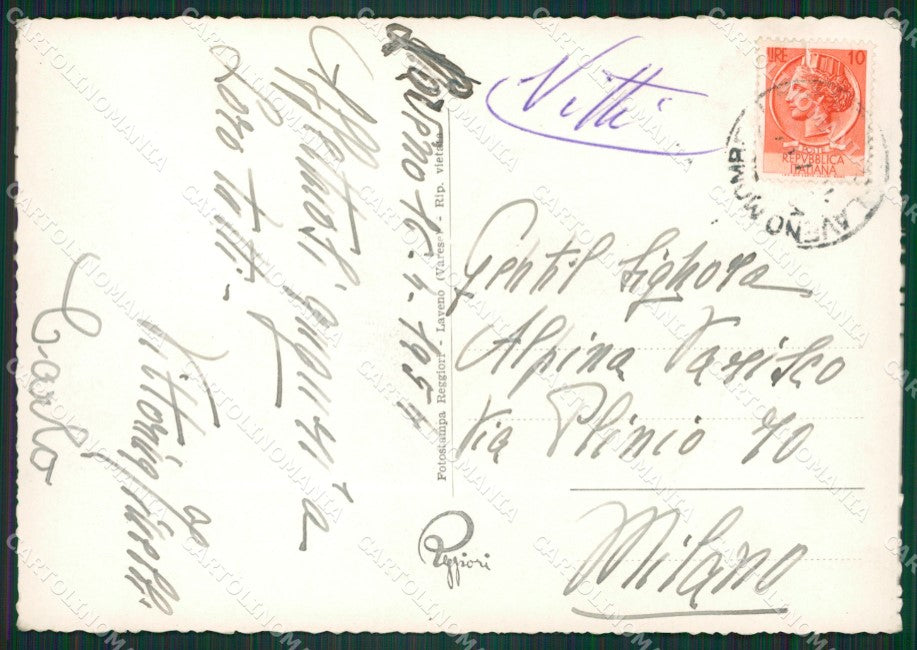 16.4.1954
Affettuosi auguri a
Loro tutti.
Carla
Fotostampa Reggiori - Laveno (Varese) - Rip. vietata
Reggiori
Vitti
LIRE 10
POSTE
REPVBBLICA
ITALIANA
LAVENO MOMB
Gentil Signora
Alpina Varisco
Via Plinio 70
Milano
CARTOLINOMANIA